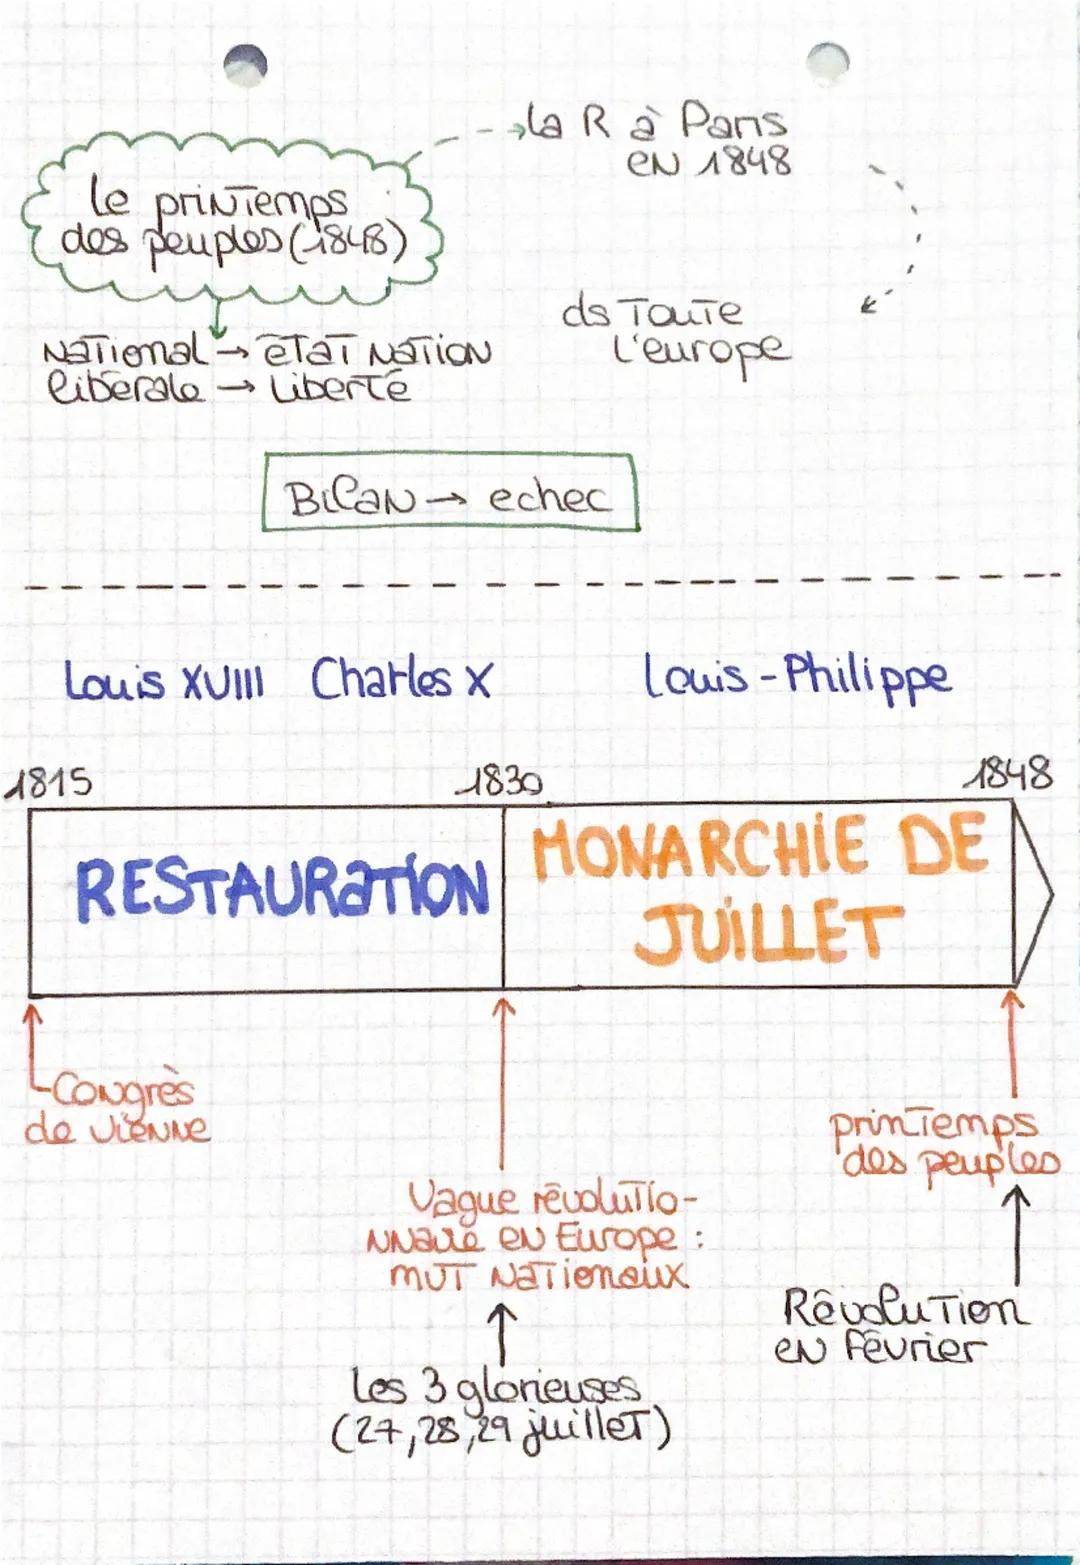 la R à Paris
en 1848
le printemps
des peuples (1848)
ds Toute
l'europe
National → état Nation
libérale → Liberté
Bilan → echec
Louis XVIII Charles X Louis-Philippe
1815 1830 1848
RESTAURATION
MONARCHIE DE
JUILLET
Congrès
de vienne
printemps
des peuples
Vague révolutio-
nnaire en Europe :
mvt Nationaux
Révolution
en février
Les 3 glorieuses
(27,28,29 juillet)